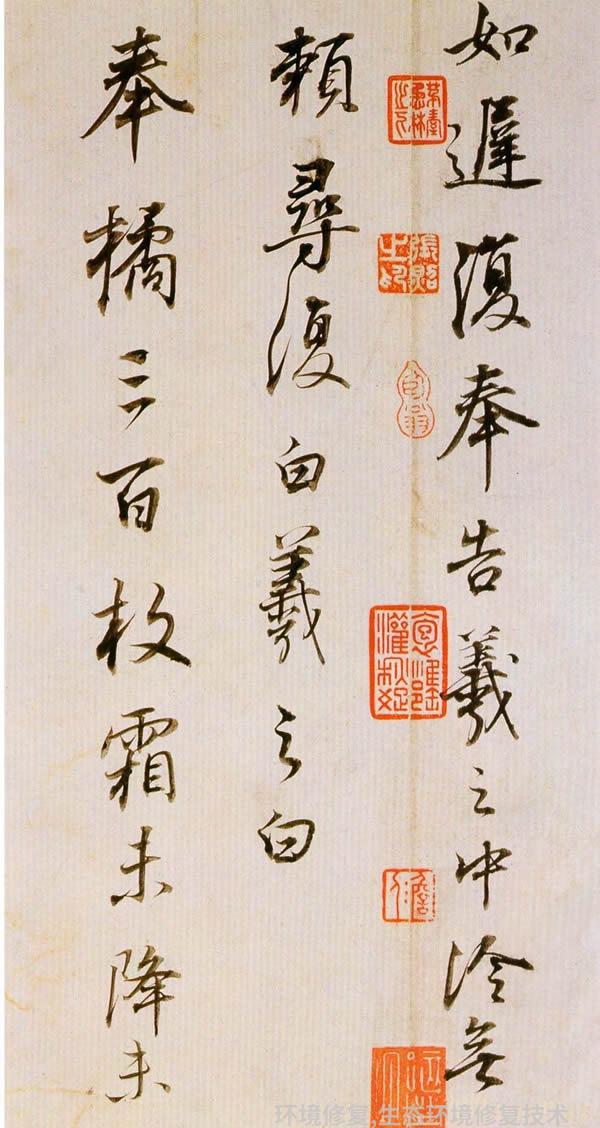 如遲復奉告羲之中冷無
賴尋復白羲之白
奉橘三百枚霜未降未
环境修复,生态环境修复技术